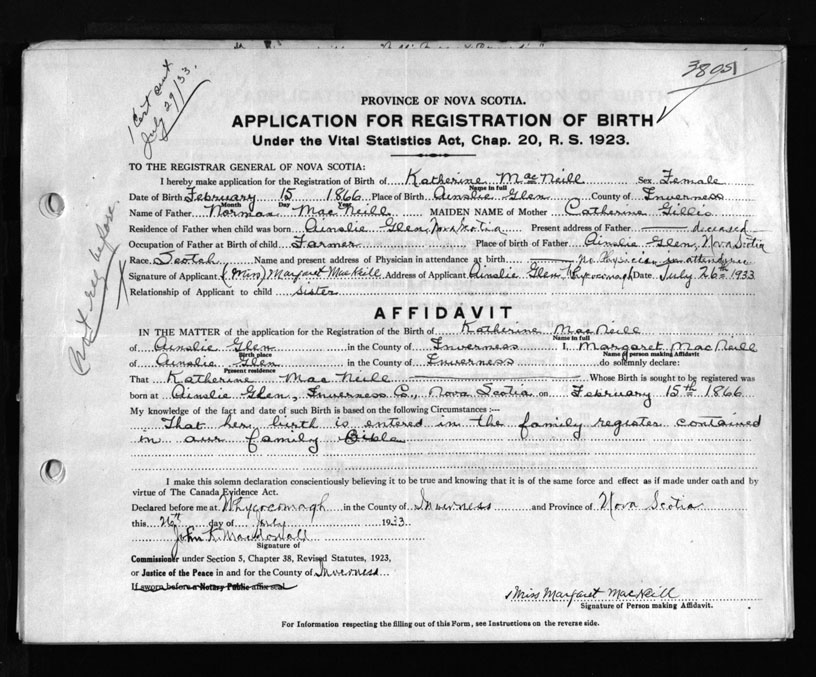 38051
1 Cert sent
July 29/33.
Not reg before.
PROVINCE OF NOVA SCOTIA.
APPLICATION FOR REGISTRATION OF BIRTH
Under the Vital Statistics Act, Chap. 20, R. S. 1923.
TO THE REGISTRAR GENERAL OF NOVA SCOTIA:
I hereby make application for the Registration of Birth of Katherine MacNeill Sex Female
Name in full
Date of Birth February 15 1866 Place of Birth Ainslie Glen County of Inverness
Month Day Year
Name of Father Norman MacNeill MAIDEN NAME of Mother Catherine Gillis
Residence of Father when child was born Ainslie Glen, Nova Scotia Present address of Father deceased
Occupation of Father at Birth of child Farmer Place of birth of Father Ainslie Glen, Nova Scotia
Race Scotch Name and present address of Physician in attendance at birth no Physician in attendance
Signature of Applicant (Miss) Margaret MacNeill Address of Applicant Ainslie Glen, Whycocomagh Date July 26th 1933
Relationship of Applicant to child sister
AFFIDAVIT
IN THE MATTER of the application for the Registration of the Birth of Katherine MacNeill
Name in full
of Ainslie Glen in the County of Inverness I, Margaret MacNeill
Birth place Name of person making Affidavit
of Ainslie Glen in the County of Inverness do solemnly declare:
Present residence
That Katherine MacNeill Whose Birth is sought to be registered was
born at Ainslie Glen, Inverness Co., Nova Scotia on February 15th 1866
My knowledge of the fact and date of such Birth is based on the following Circumstances :—
That her birth is entered in the family register contained
in our family Bible
I make this solemn declaration conscientiously believing it to be true and knowing that it is of the same force and effect as if made under oath and by
virtue of The Canada Evidence Act.
Declared before me at Whycocomagh in the County of Inverness and Province of Nova Scotia
this 26th day of July 1933
John K. MacDonall
Signature of
Commissioner under Section 5, Chapter 38, Revised Statutes, 1923,
or Justice of the Peace in and for the County of Inverness
If sworn before a Notary Public affix seal
Miss Margaret MacNeill
Signature of Person making Affidavit.
For Information respecting the filling out of this Form, see Instructions on the reverse side.